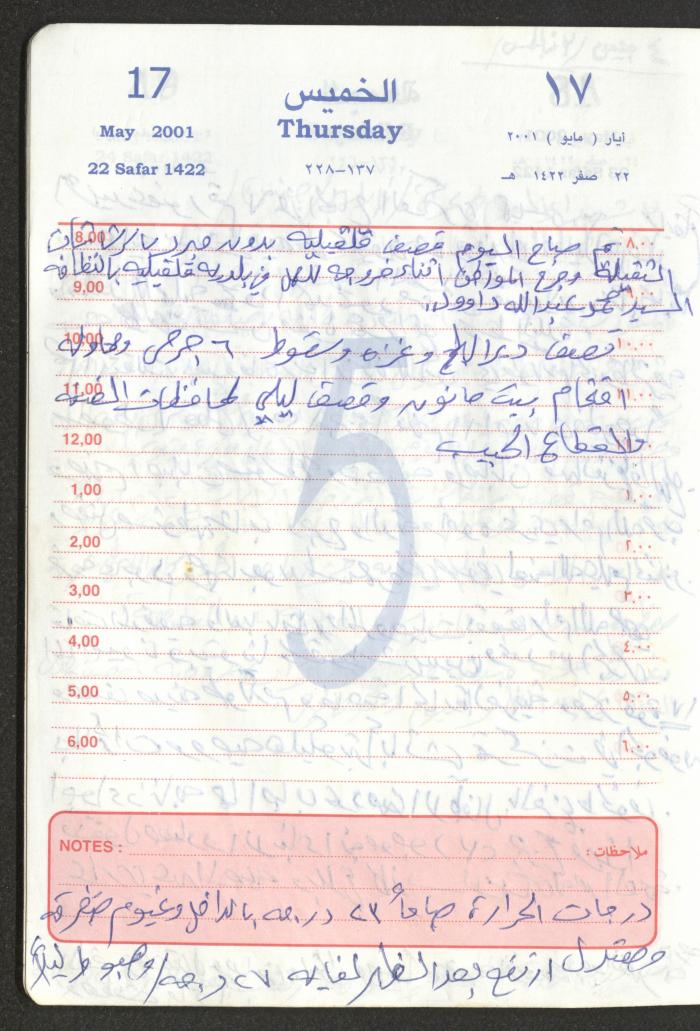 17 الخميس ١٧
May 2001 Thursday أيار ( مايو ) ٢٠٠١
22 Safar 1422 ١٣٧–٢٢٨ ٢٢ صفر ١٤٢٢ هـ
8,00 صباح اليوم قصف قلقيلية بدون مبرر بالرشاشات ٨,٠٠
الثقيلة وجرح المواطن اثناء خروجه للعمل في بلدية قلقيلية بالنظافة
9,00
السيد عبدالله داوود.
10,00 قصف ديرالبلح وغزة وسقوط ٦ جرحى ومحاولة ١٠,٠٠
11,00 اقتحام بيت حانون وقصف ليلي لمحافظات الضفة ١١,٠٠
والقطاع الحبيب
12,00
1,00 ١,٠٠
2,00 ٢,٠٠
3,00 ٣,٠٠
4,00 ٤,٠٠
5,00 ٥,٠٠
6,00 ٦,٠٠
NOTES : ملاحظات :
درجات الحرارة صباحاً ٢٣ درجه بالداخل وغيوم متفرقة
ومعتدل ارتفع بعد الظهر لغاية ٢٧ درجه/